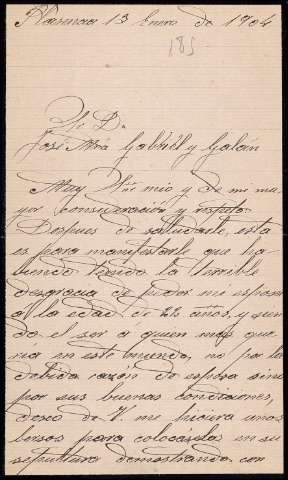 Plasencia 13 Enero de 1904
185
Sr. D.
José Mrá Gabriél y Galán
Muy Sñr mio y de mi ma
yor consideración y respeto
Despues de saludarle, esta
es para manifestarle que ha
biendo tenido la terrible
desgracia de perder mi esposa
á la edad de 22 años, y sien
do el ser á quien mas que
ria en este mundo, no por la
debida razón de esposa sino
por sus buenas condiciones,
deseo de V. me hiciera unos
bersos para colocarselos en su
sepultura demostrando con